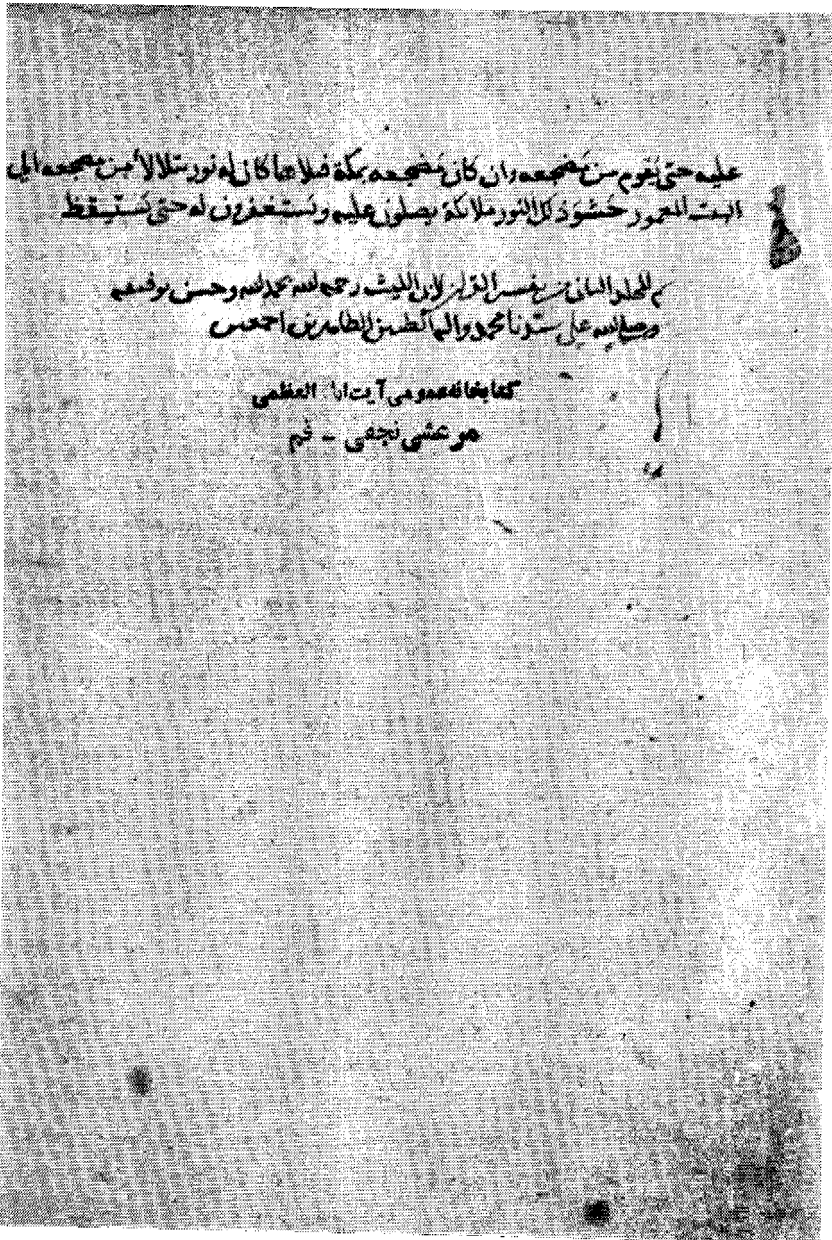 عليه حتى يَقوم من مَضجعه وان كان مَضجعه بمكة فتلاها كان له نور يتلالأ من مضجعه الى
البيت المعمور حَشوُ ذلك النور ملائكة يصلون عليه ويَستغفرون له حتى يَستيقظ
تم المجلد الثانى من تفسير القران لابى الليث رحمه الله بحمد الله وحسن توفيقه
وصلى الله على سيدنا محمد واله الطيبين الطاهرين اجمعين
کتابخانه عمومی آیت الله العظمی
مرعشی نجفی - قم